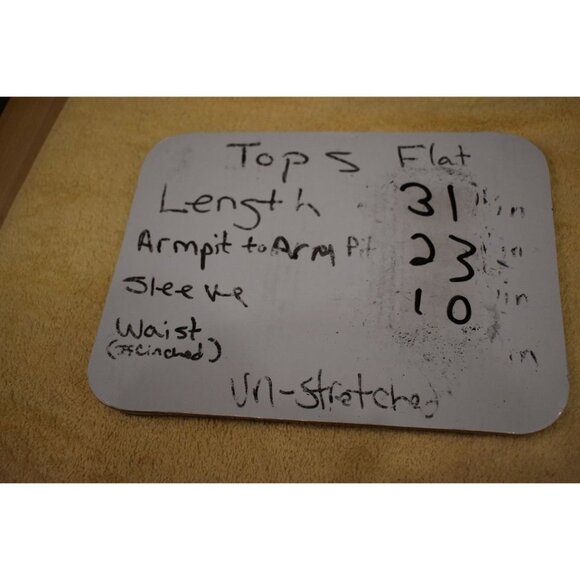 Tops Flat
Length 31 in
Armpit to Arm Pit 23 in
Sleeve 10 in
Waist in
(If Cinched)
Un-Stretched